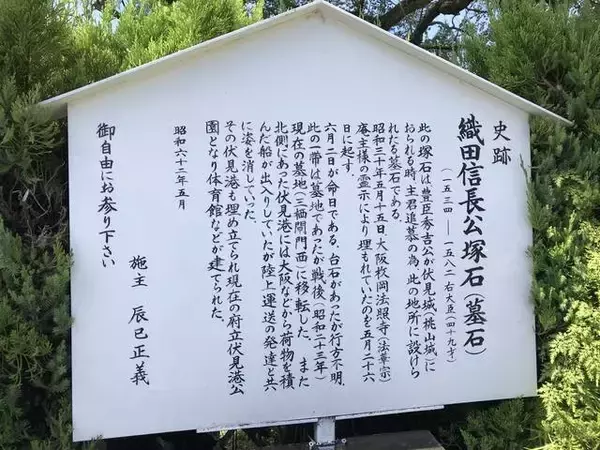 史跡
織田信長公塚石(墓石)
(一五三四—一五八二右大臣(四十九才)
此の塚石は豊臣秀吉公が伏見城(桃山城)に
おられる時、主君追墓の為、此の地所に設けら
れたる墓石である。
昭和三十年五月十五日、大阪枚岡法照寺(法華宗)
庵主様の霊示により埋もれていたのを五月二十六
日に起す。
六月二日が命日である。台石があったが行方不明、
此の一帯は墓地であったが戦後(昭和二十三年)
現在の墓地(三栖閘門西)に移転した。また
北側にあった伏見港には大阪などから荷物を積
んだ船が出入りしていたが陸上運送の発達と共
に姿を消していった。
その伏見港も埋め立てられ現在の府立伏見港公
園となり体育館などが建てられた。
昭和六十二年五月
御自由にお参り下さい
施主 辰巳正義